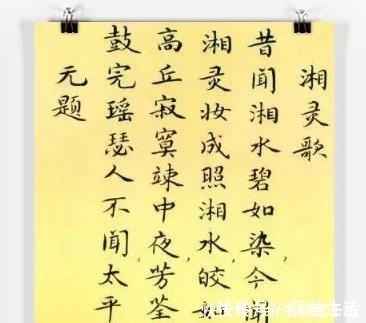 湘灵歌
昔闻湘水碧如染，今闻
湘灵妆成照湘水，皎如
高丘寂寞竦中夜，芳荃
鼓完瑶瑟人不闻，太平
无题